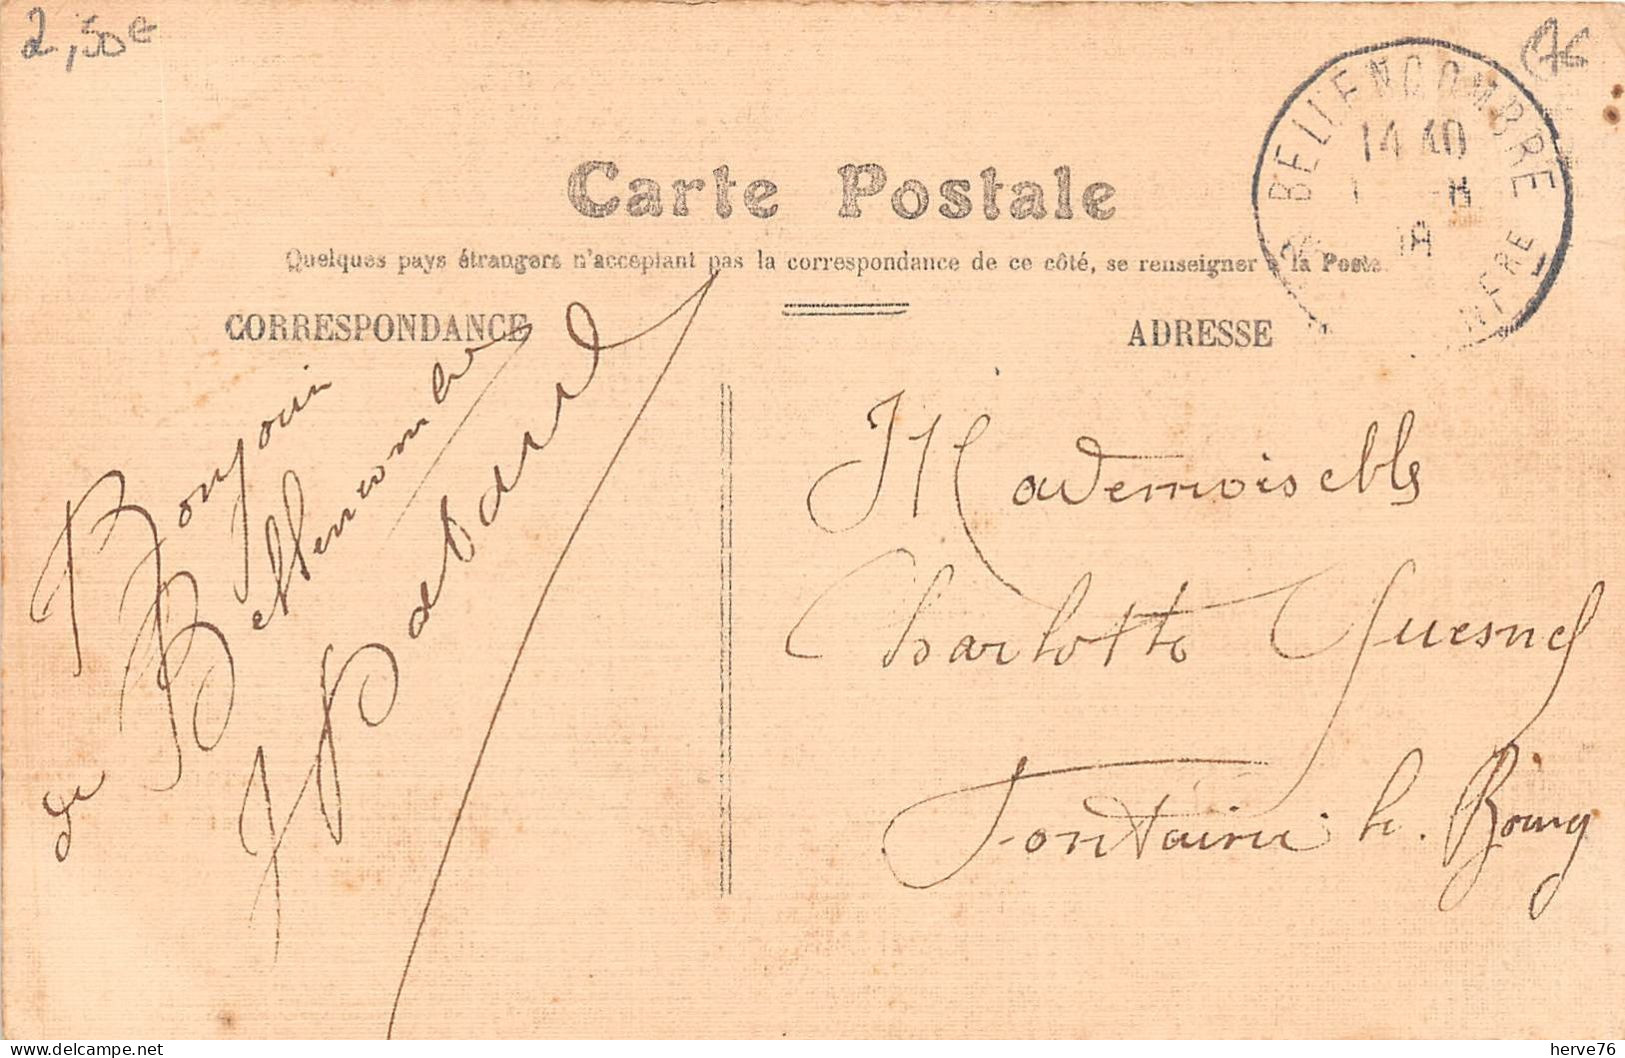 2,50€
76
BELLENCOMBRE
14 40
Carte Postale
Quelques pays étrangers n'acceptant pas la correspondance de ce côté, se renseigner à la Poste.
CORRESPONDANCE
ADRESSE
Bonjour
de Bellencombre
Mademoiselle
Charlotte Quesnel
Fontaine le. Bourg
herve76